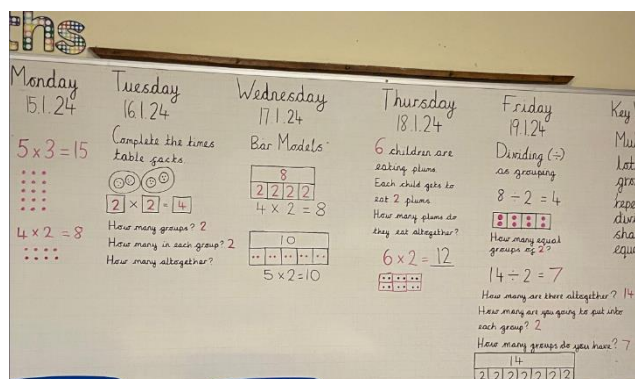 ths
Monday
15.1.24
5 x 3 = 15
4 x 2 = 8
Tuesday
16.1.24
Complete the times
table facts.
2 x 2 = 4
How many groups? 2
How many in each group? 2
How many altogether?
Wednesday
17.1.24
Bar Models
8
2 2 2 2
4 x 2 = 8
10
5 x 2 = 10
Thursday
18.1.24
6 children are
eating plums.
Each child gets to
eat 2 plums.
How many plums do
they eat altogether?
6 x 2 = 12
Friday
19.1.24
Dividing (÷)
as grouping
8 ÷ 2 = 4
How many equal
groups of 2?
14 ÷ 2 = 7
How many are there altogether? 14
How many are you going to put into
each group? 2
How many groups do you have? 7
14
2 2 2 2 2 2 2
Key
Mu
Lot
gro
repe
divi
sha
equ